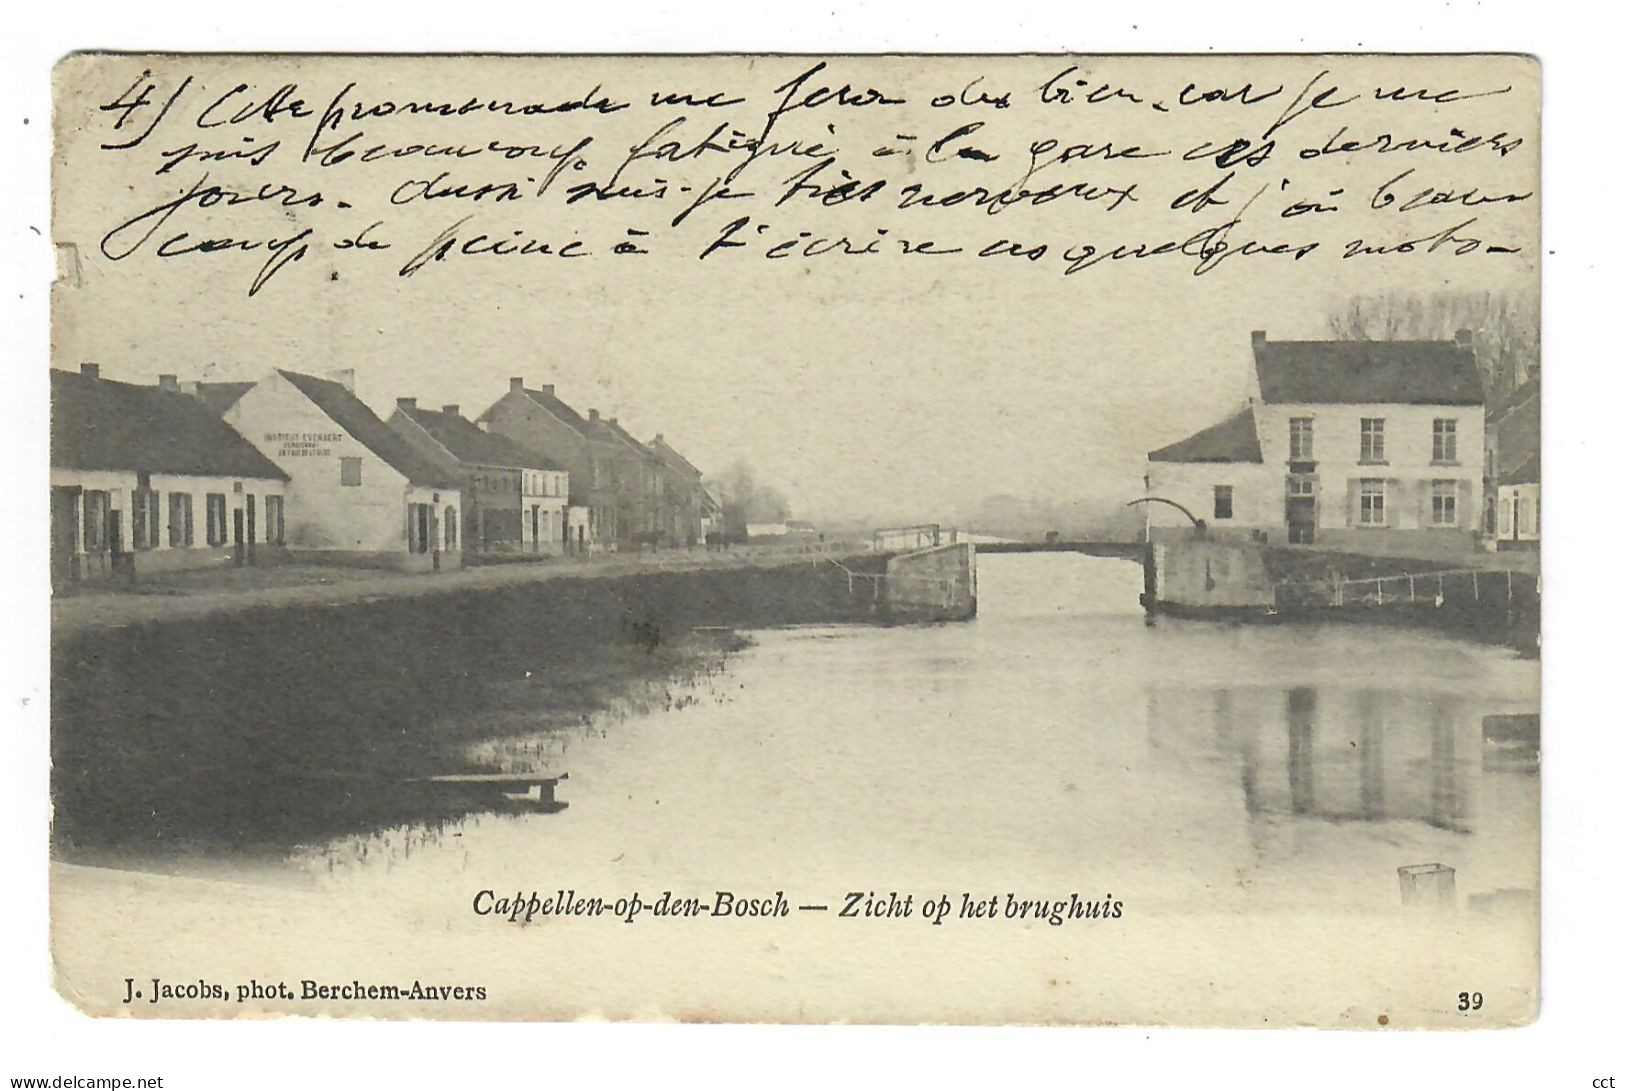 4) Cette promenade me fera du bien, car je me
suis beaucoup fatigué à la gare ces derniers
jours. Aussi suis-je très nerveux et j'ai beau
coup de peine à t'écrire ces quelques mots.-
INSTITUT EVERAERT
PENSIONNAT
Cappellen-op-den-Bosch — Zicht op het brughuis
J. Jacobs, phot. Berchem-Anvers
39
delcampe.net
cct